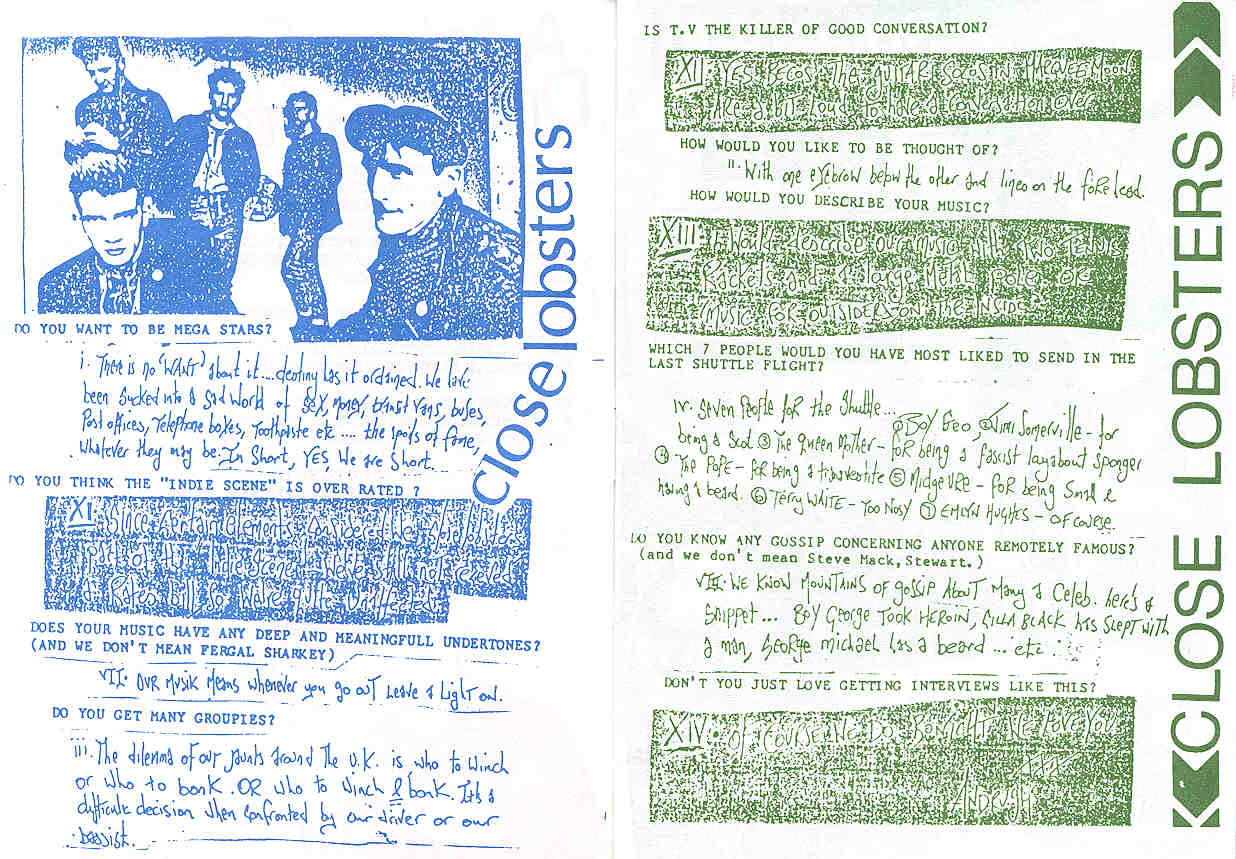 close lobsters
DO YOU WANT TO BE MEGA STARS?
i. There is no 'WANT' about it.... destiny has it ordained. We have
been sucked into a sad world of SEX, money, transit vans, buses,
Post offices, Telephone boxes, Toothpaste etc .... the spoils of fame,
whatever they may be. In Short, YES, We are Short.
DO YOU THINK THE "INDIE SCENE" IS OVER RATED ?
XI. Since certain elements
not received
a Rates bill so we're quite
DOES YOUR MUSIC HAVE ANY DEEP AND MEANINGFULL UNDERTONES?
(AND WE DON'T MEAN FERGAL SHARKEY)
VII. OUR MUSIK Means whenever you go out Leave a Light on.
DO YOU GET MANY GROUPIES?
iii. The dilemma of our jaunts around The U.K. is who to winch
or who to bonk. OR who to winch & bonk. It's a
difficult decision when confronted by our driver or our
bassist.
IS T.V THE KILLER OF GOOD CONVERSATION?
XII. YES BECOS THA GUITAR SOLOS IN
Are a bit loud To Hold a conversation over
HOW WOULD YOU LIKE TO BE THOUGHT OF?
II. With one eyebrow below the other and lines on the forehead.
HOW WOULD YOU DESCRIBE YOUR MUSIC?
XIII. I Would describe our music with Two Tennis
Rackets and a large Metal
Music FOR OUTSIDERS ON THE INSIDE.
WHICH 7 PEOPLE WOULD YOU HAVE MOST LIKED TO SEND IN THE
LAST SHUTTLE FLIGHT?
iv. Seven People for the Shuttle... ① BOY Geo, ② Jimi Somerville - for
being a Scot ③ The Queen Mother - for being a fascist layabout sponger
④ The POPE - for being a transvestite ⑤ Midge URE - for being Small &
having a beard. ⑥ Terry WAITE - Too Nosy ⑦ EMLYN HUGHES - OF COURSE.
DO YOU KNOW ANY GOSSIP CONCERNING ANYONE REMOTELY FAMOUS?
(and we don't mean Steve Mack, Stewart.)
VII. WE KNOW MOUNTAINS of gossip About Many a Celeb. here's a
Snippet... BOY George TOOK HEROIN, CILLA BLACK has Slept with
a man, George michael has a beard ... etc
DON'T YOU JUST LOVE GETTING INTERVIEWS LIKE THIS?
XIV. OF COURSE We Do We LOVE YOU
XXX
ANDREW
CLOSE LOBSTERS